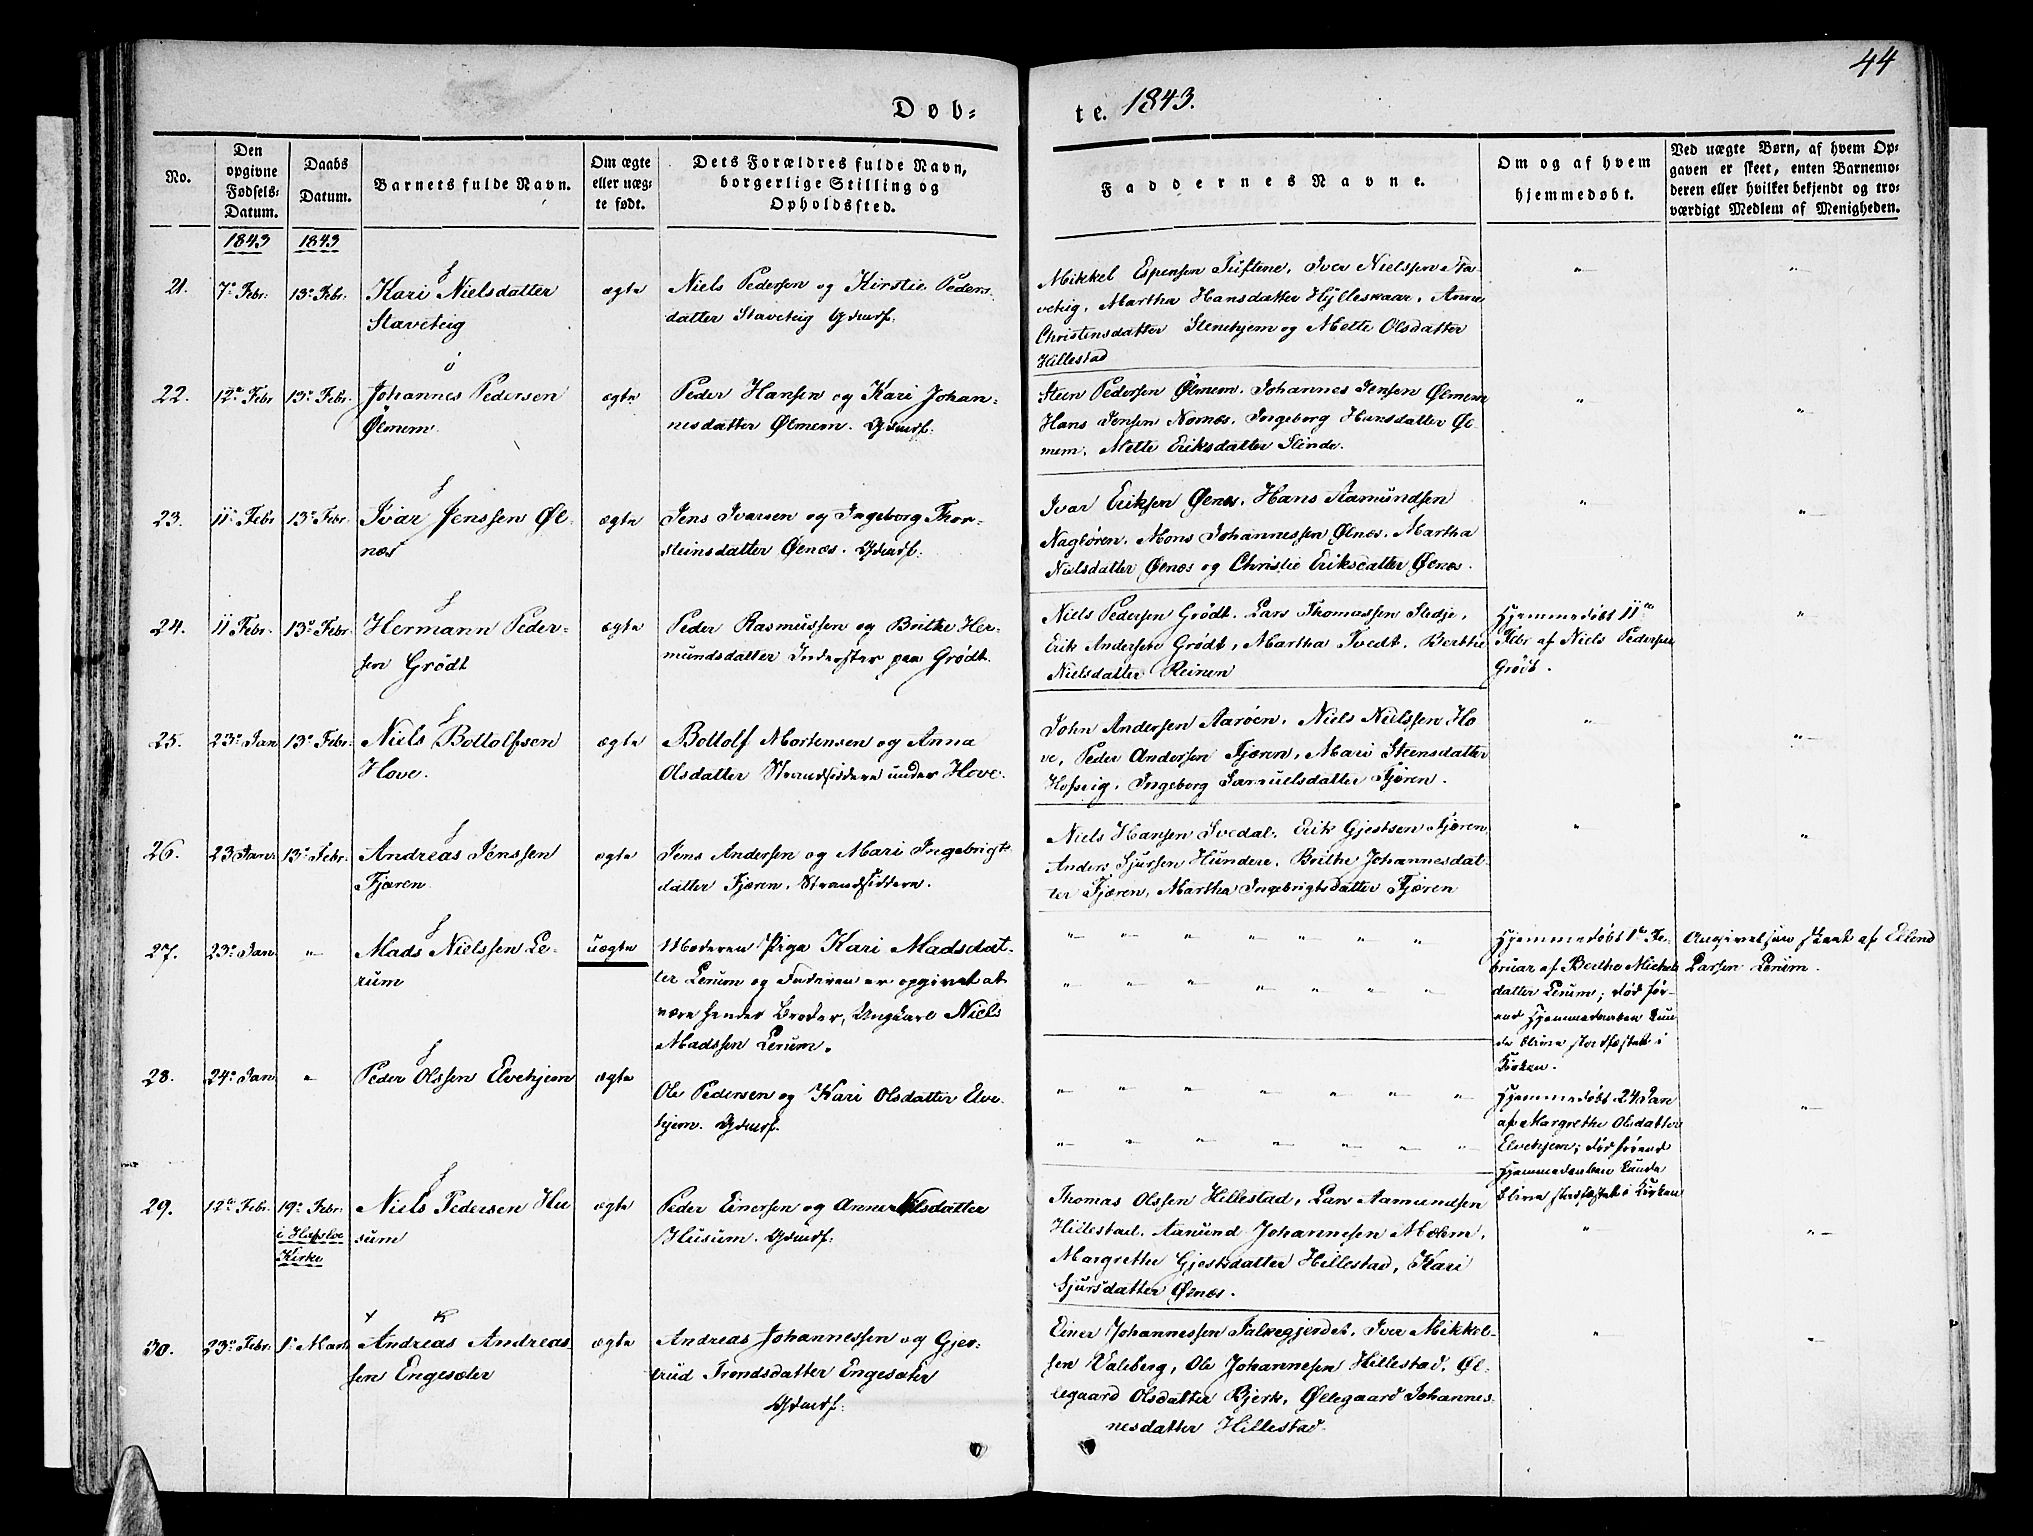 44
Døb=
te. 1843.
No.
Den opgivne Fødsels-Datum.
Daabs Datum.
Barnets fulde Navn.
Om ægte eller uæg-te født.
Dets Forældres fulde Navn, borgerlige Stilling og Opholdssted.
Faddernes Navne.
Om og af hvem hjemmedøbt.
Ved uægte Børn, af hvem Op-gaven er skeet, enten Barnemo-deren eller hvilket bekjendt og tro-værdigt Medlem af Menigheden.
1843 1843
21. 7de Febr. 13de Febr.
Kari Nielsdatter
Staveteig
ægte
Niels Pedersen og Kirstie Peders-
datter Staveteig Gbmdf.
Mikkel Espensen Tuftene, Iver Nielssen Sta-
veteig, Martha Hansdatter Hylleskaar, Anne
Christensdatter Stenehjem og Mette Olsdatter
Hillestad
22. 12te Febr 13de Febr.
Johannes Pedersen
Ølmem.
ægte
Peder Hansen og Kari Johan-
nesdatter Ølmem. Gbmdf.
Steen Pedersen Ølmem. Johannes Jensen Ølmem
Hans Jensen Nornæs, Ingeborg Hansdatter Øl-
mem, Mette Eriksdatter Slinde.
23. 11te Febr 13de Febr.
Ivar Jenssen Øl-
næs
ægte
Jens Ivarsen og Ingeborg Thor-
steinsdatter Ølnæs. Gbmdf.
Ivar Eriksen Ølnæs, Hans Aamundsen
Nagløren, Mons Johannessen Ølnæs, Martha
Nielsdatter Ølnæs og Christie Eriksdatter Ølnæs.
24. 11 Febr. 13de Febr
Hermann Peder-
sen Grødt
ægte
Peder Rasmussen og Brithe Her-
mundsdatter Inderster paa Grødt.
Niels Pedersen Grødt. Lars Thomassen Stedje,
Erik Andersen Grødt, Martha Tvedt, Berthe
Nielsdatter Reinen
Hjemmedøbt 11te
Febr af Niels Pedersen
Grødt.
25. 23de Jan 13de Febr.
Niels Bottolfsen
Hove.
ægte
Bottolf Mortensen og Anna
Olsdatter Strandsiddere under Hove.
John Andersen Aarøen, Niels Nielssen Ho
ve, Peder Andersen Fjæren, Mari Steensdatter
Hofsvig, Ingeborg Samuelsdatter Fjæren.
26. 23 Jan. 13de Febr.
Andreas Jenssen
Fjæren
ægte
Jens Andersen og Mari Ingebrigts
datter Fjæren, Strandsiddere.
Niels Hansen Svedal, Erik Gjestsen Fjæren,
Anders Sjursen Hundere, Brithe Johannesdat-
ter Fjæren, Martha Ingebrigtsdatter Fjæren
27. 23de Jan "
Mads Nielssen Le-
rum
uægte
Moderen Pige Kari Madsdat-
ter Lerum og Faderen er opgivet at
være hendes Broder, Ungkarl Niels
Madssen Lerum.
Hjemmedøbt 1te Fe-
bruar af Berthe Michels
datter Lerum; død før-
end Hjemmedaaben kun-
de blive stadfæstet i
Kirken.
Angivelsen skeet af Erlend
Larsen Lerum.
28. 24de Jan "
Peder Olssen Elvehjem
ægte
Ole Pedersen og Kari Olsdatter Elve-
hjem. Gbmdf.
Hjemmedøbt 24 Jan
af Margrethe Olsdatter
Elvehjem; død førend
Hjemmedaaben kunde
blive stadfæstet i Kirken
29. 12te Febr. 19de Febr.
i Hafslo
Kirke
Niels Pedersen Hu
sum
ægte
Peder Einersen og Anna Nilsdatter
Husum. Gbmdf.
Thomas Olssen Hillestad, Lars Aamundsen
Hillestad, Aamund Johannesen Mølem,
Margrethe Gjestsdatter Hillestad, Kari
Sjursdatter Ølnæs.
30. 23de Febr. 1te Mart
Andreas Andreas
sen Engesæter
ægte
Andreas Johannessen og Gjer-
trud Trondsdatter Engesæter
Gbmdf.
Einer Johannessen Falkegjerdet, Iver Mikkel-
sen Valeberg, Ole Johannesen Hillestad, Øl-
legaard Olsdatter Bjerk, Øllegaard Johannes
nesdatter Hillestad.